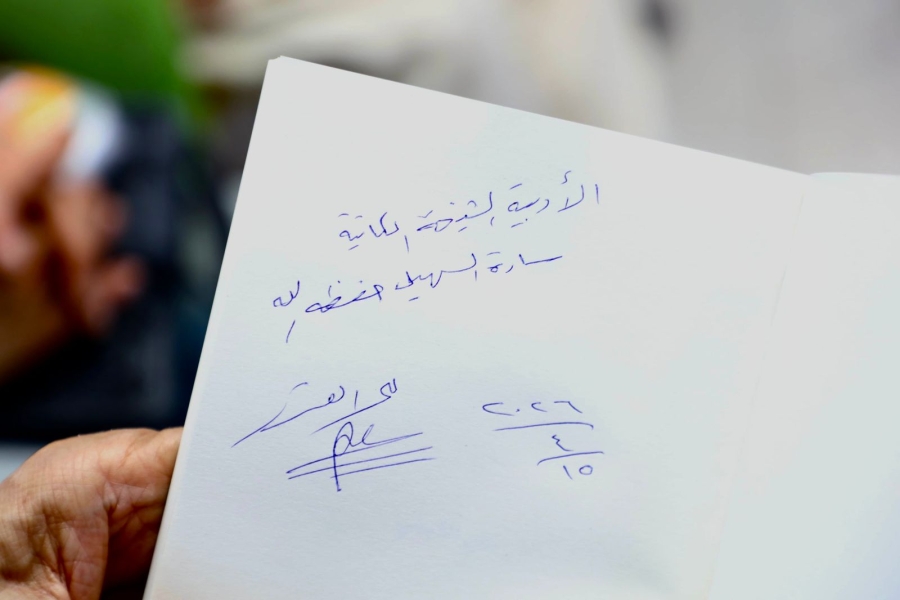 الأديبة الشيخة الكاتبة
سارة السهيل حفظها الله
٢٠٢٦
٤
١٥